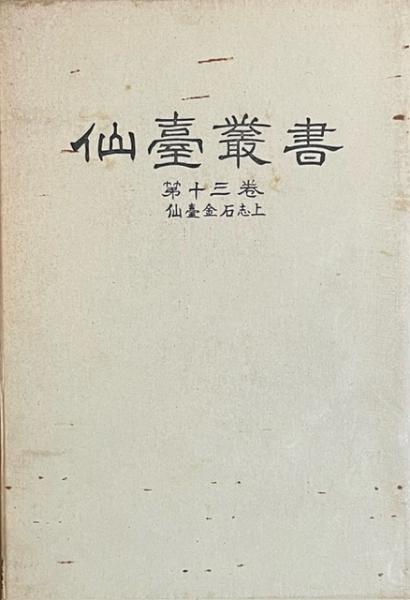 仙臺叢書
第十三卷
仙臺金石志上